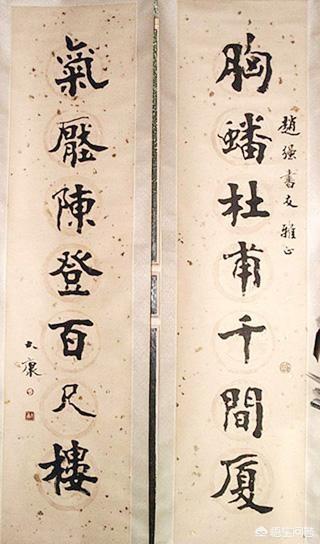 胸蟠杜甫千間厦
趙强書友雅正
氣壓陳登百尺樓
大康
悟空问答